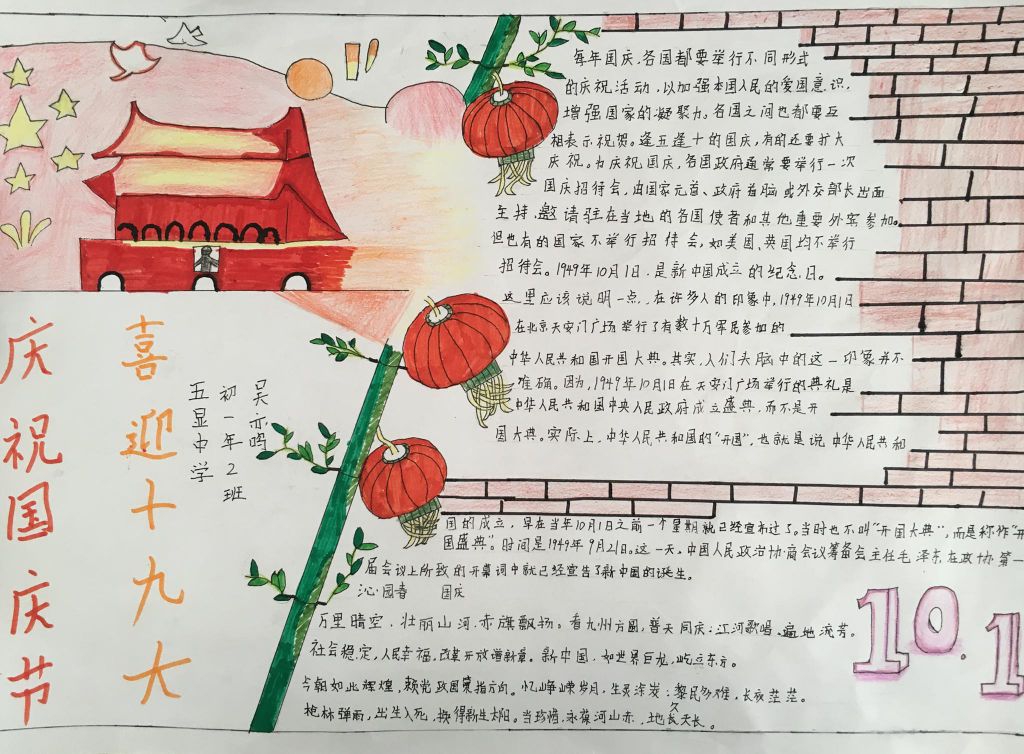 庆祝国庆节
喜迎十九大
五显中学
初一年2班
吴亦鸣
每年国庆,各国都要举行不同形式
的庆祝活动,以加强本国人民的爱国意识,
增强国家的凝聚力。各国之间也都要互
相表示祝贺。逢五逢十的国庆,有的还要扩大
庆祝。为庆祝国庆,各国政府通常要举行一次
国庆招待会,由国家元首、政府首脑或外交部长出面
主持,邀请驻在当地的各国使者和其他重要外宾参加。
但也有的国家不举行招待会,如美国、英国均不举行
招待会。1949年10月1日,是新中国成立的纪念日。
这里应该说明一点,在许多人的印象中,1949年10月1日
在北京天安门广场举行了有数十万军民参加的
中华人民共和国开国大典。其实,人们头脑中的这一印象并不
准确。因为,1949年10月1日在天安门广场举行的典礼是
中华人民共和国中央人民政府成立盛典,而不是开
国大典。实际上,中华人民共和国的"开国",也就是说中华人民共和
国的成立,早在当年10月1日之前一个星期就已经宣布过了。当时也不叫"开国大典",而是称作"开
国盛典"。时间是1949年9月21日。这一天,中国人民政治协商会议筹备会主任毛泽东在政协第一
届会议上所致的开幕词中就已经宣告了新中国的诞生。
沁园春 国庆
万里晴空,壮丽山河,赤旗飘扬。看九州方圆,普天同庆;江河歌唱,遍地流芳。
社会稳定,人民幸福,改革开放谱新章。新中国,如世界巨龙,屹立东方。
今朝如此辉煌,赖党政国策指方向。忆峥嵘岁月,生灵涂炭;黎民多难,长夜茫茫。
枪林弹雨,出生入死,换得新生太阳。当珍惜,永葆河山赤,地久天长。
10.1